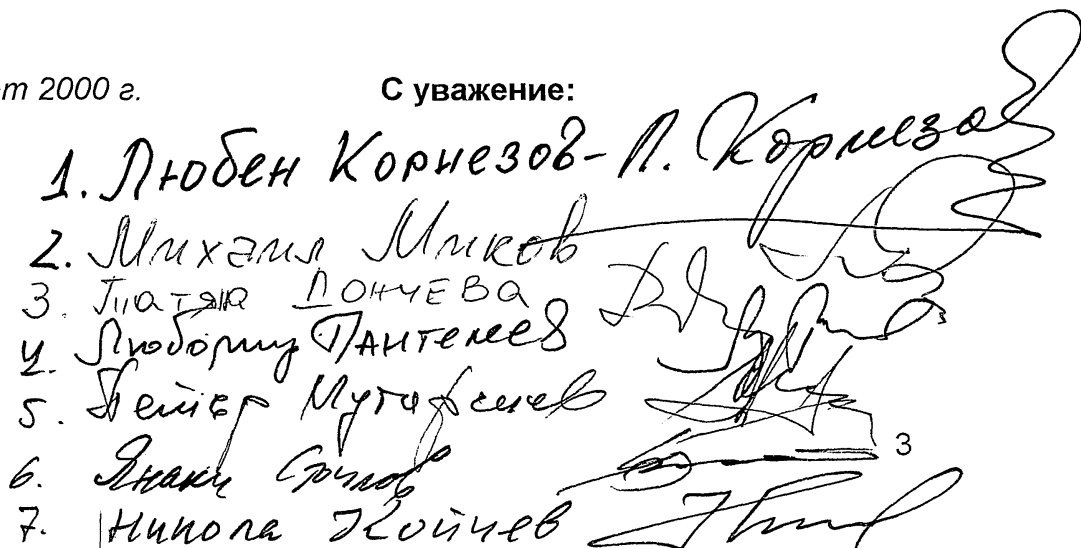 т 2000 г. С уважение:
1. Любен Корнезов - Л. Корнезов
2. Михаил Миков
3. Татяна Дончева
4. Любомир Пантелеев
5. Петър Мутафчиев
6. Янаки Стоилов
3
7. Никола Койчев